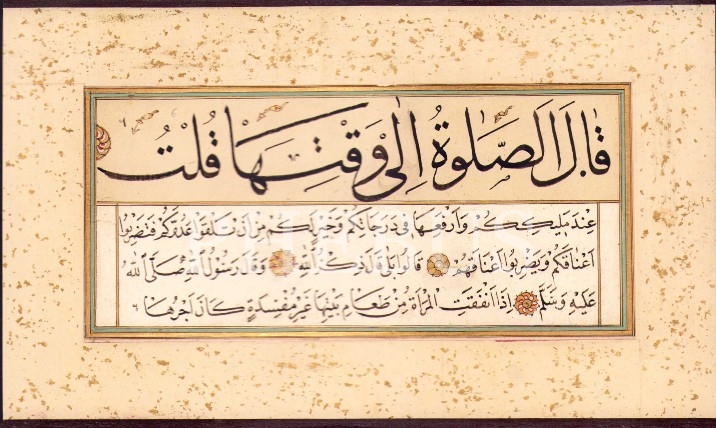 قَالَ الصَّلٰوةُ اِلٰى وَقْتِهَا قُلْتُ
عِنْدَ مَلِيكِكُمْ وَاَرْفَعِهَا فِى دَرَجَاتِكُمْ وَخَيْرٍ لَكُمْ مِنْ اَنْ تَلْقَوْا عَدُوَّكُمْ فَتَضْرِبُوا
اَعْنَاقَكُمْ وَيَضْرِبُوا اَعْنَاقَهُمْ قَالُوا بَلٰى قَالَ ذِكْرُ اللّٰهِ وَقَالَ رَسُولُ اللّٰهِ صَلَّى اللّٰهُ
عَلَيْهِ وَسَلَّمَ اِذَا اَنْفَقَتِ الْمَرْاَةُ مِنْ طَعَامِ بَيْتِهَا غَيْرَ مُفْسِدَةٍ كَانَ اَجْرُهَا